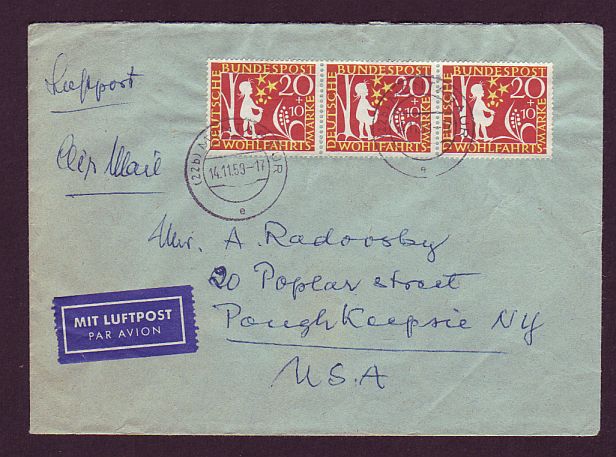 Luftpost
Air Mail
DEUTSCHE BUNDESPOST 20 + 10 WOHLFAHRTS MARKE
DEUTSCHE BUNDESPOST 20 + 10 WOHLFAHRTS MARKE
DEUTSCHE BUNDESPOST 20 + 10 WOHLFAHRTS MARKE
(22b)
14.11.59-17
e
e
Mr. A. Radovsby
20 Poplar street
PoughKeepsie NY
USA
MIT LUFTPOST
PAR AVION